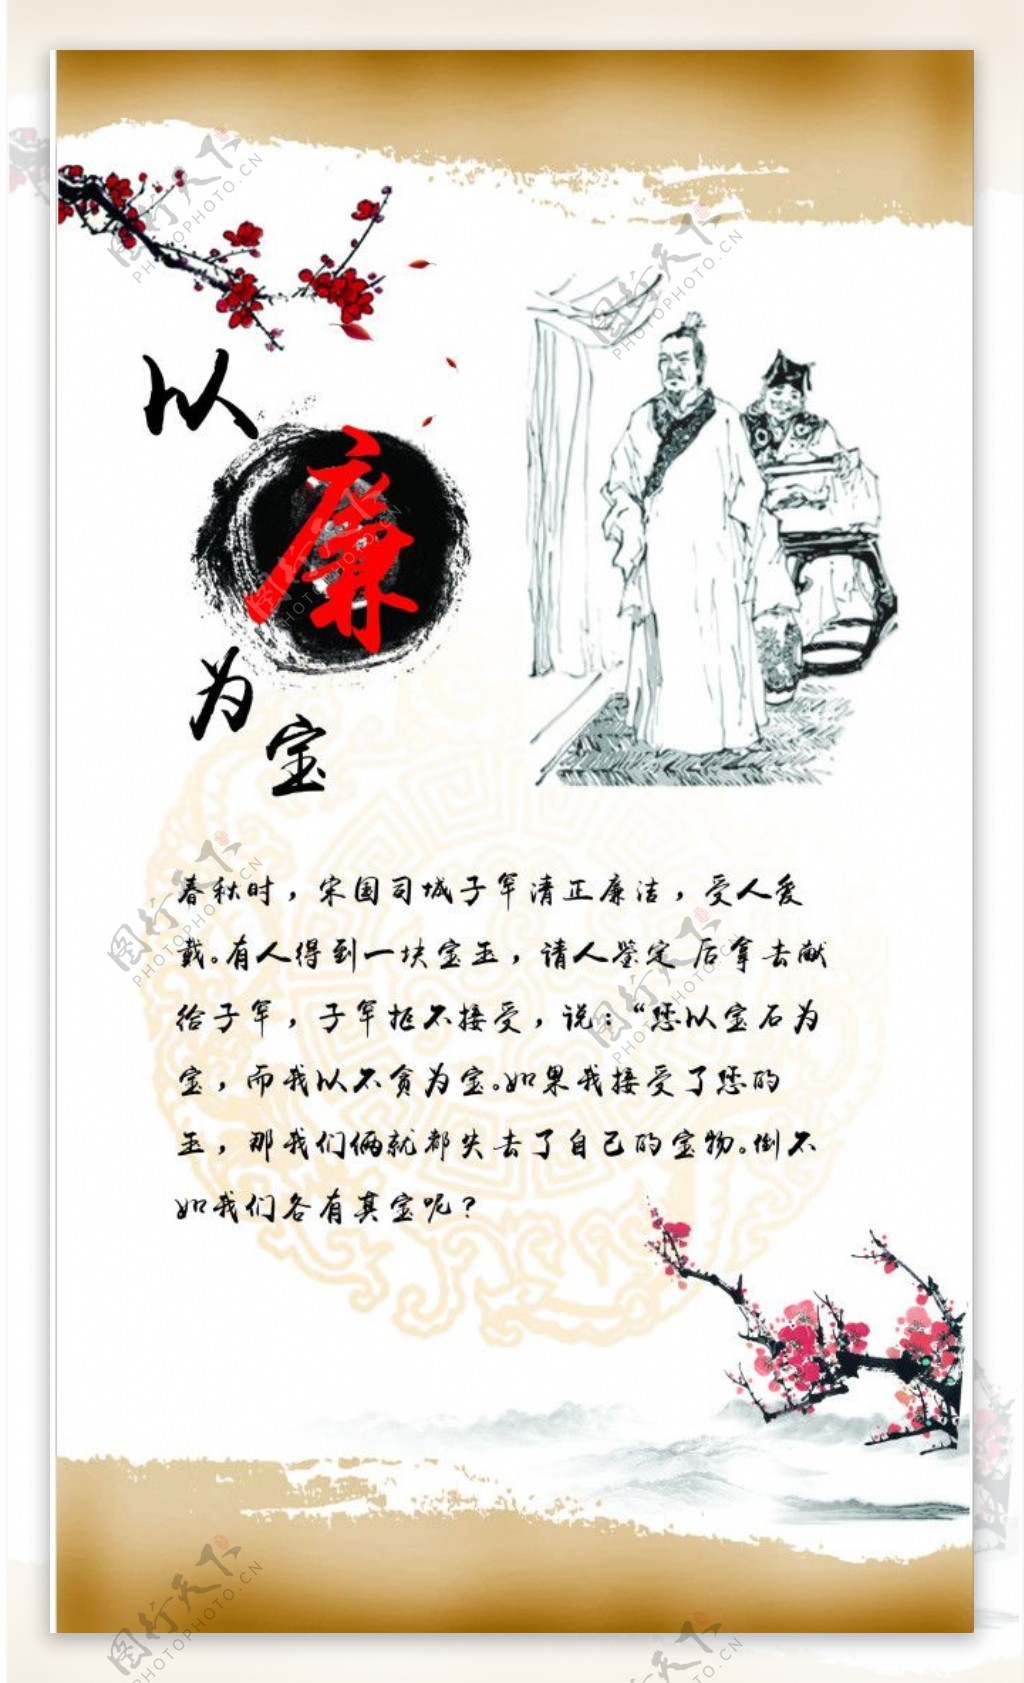 以
廉
为
宝
春秋时，宋国司城子罕清正廉洁，受人爱
戴。有人得到一块宝玉，请人鉴定后拿去献
给子罕，子罕拒不接受，说：“您以宝石为
宝，而我以不贪为宝。如果我接受了您的
玉，那我们俩就都失去了自己的宝物。倒不
如我们各有其宝呢？
图行天下
PHOTOPHOTO.CN